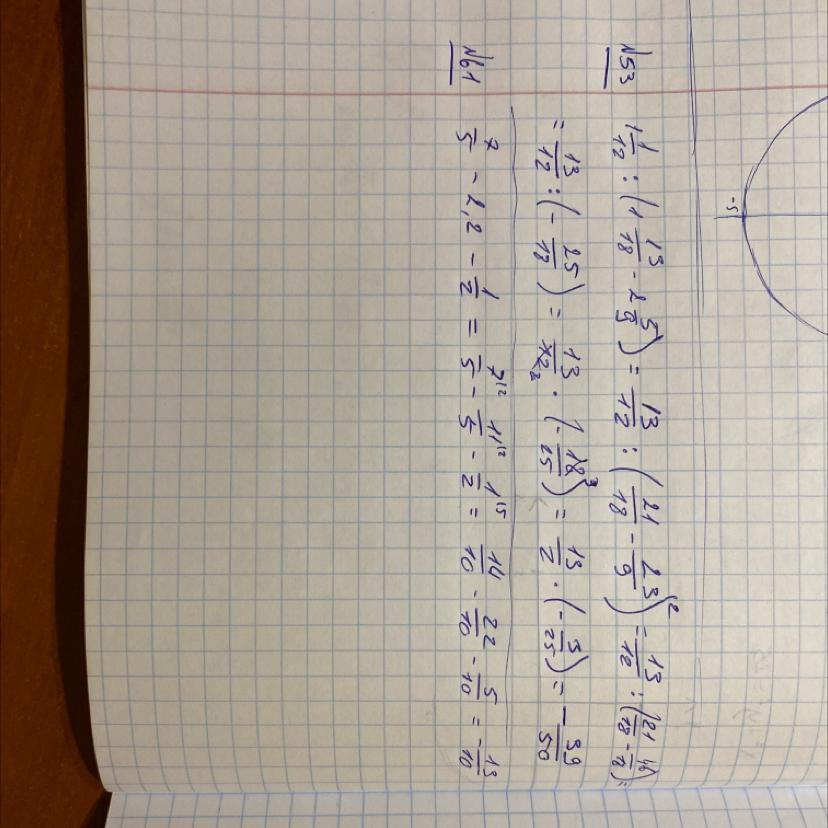 -5
№53 1 1/12 : (1 13/18 - 2 5/9) = 13/12 : (21/18 - 23/9)^{12} = 13/12 : (21/18 - 46/18) =
= 13/12 : (- 25/18) = 13/12_2 · (- 18/25)^3 = 13/2 · (- 3/25) = - 39/50
№61 7/5 - 2,2 - 1/2 = 7^{12}/5 - 11^{12}/5 - 1^{15}/2 = 14/10 - 22/10 - 5/10 = - 13/10